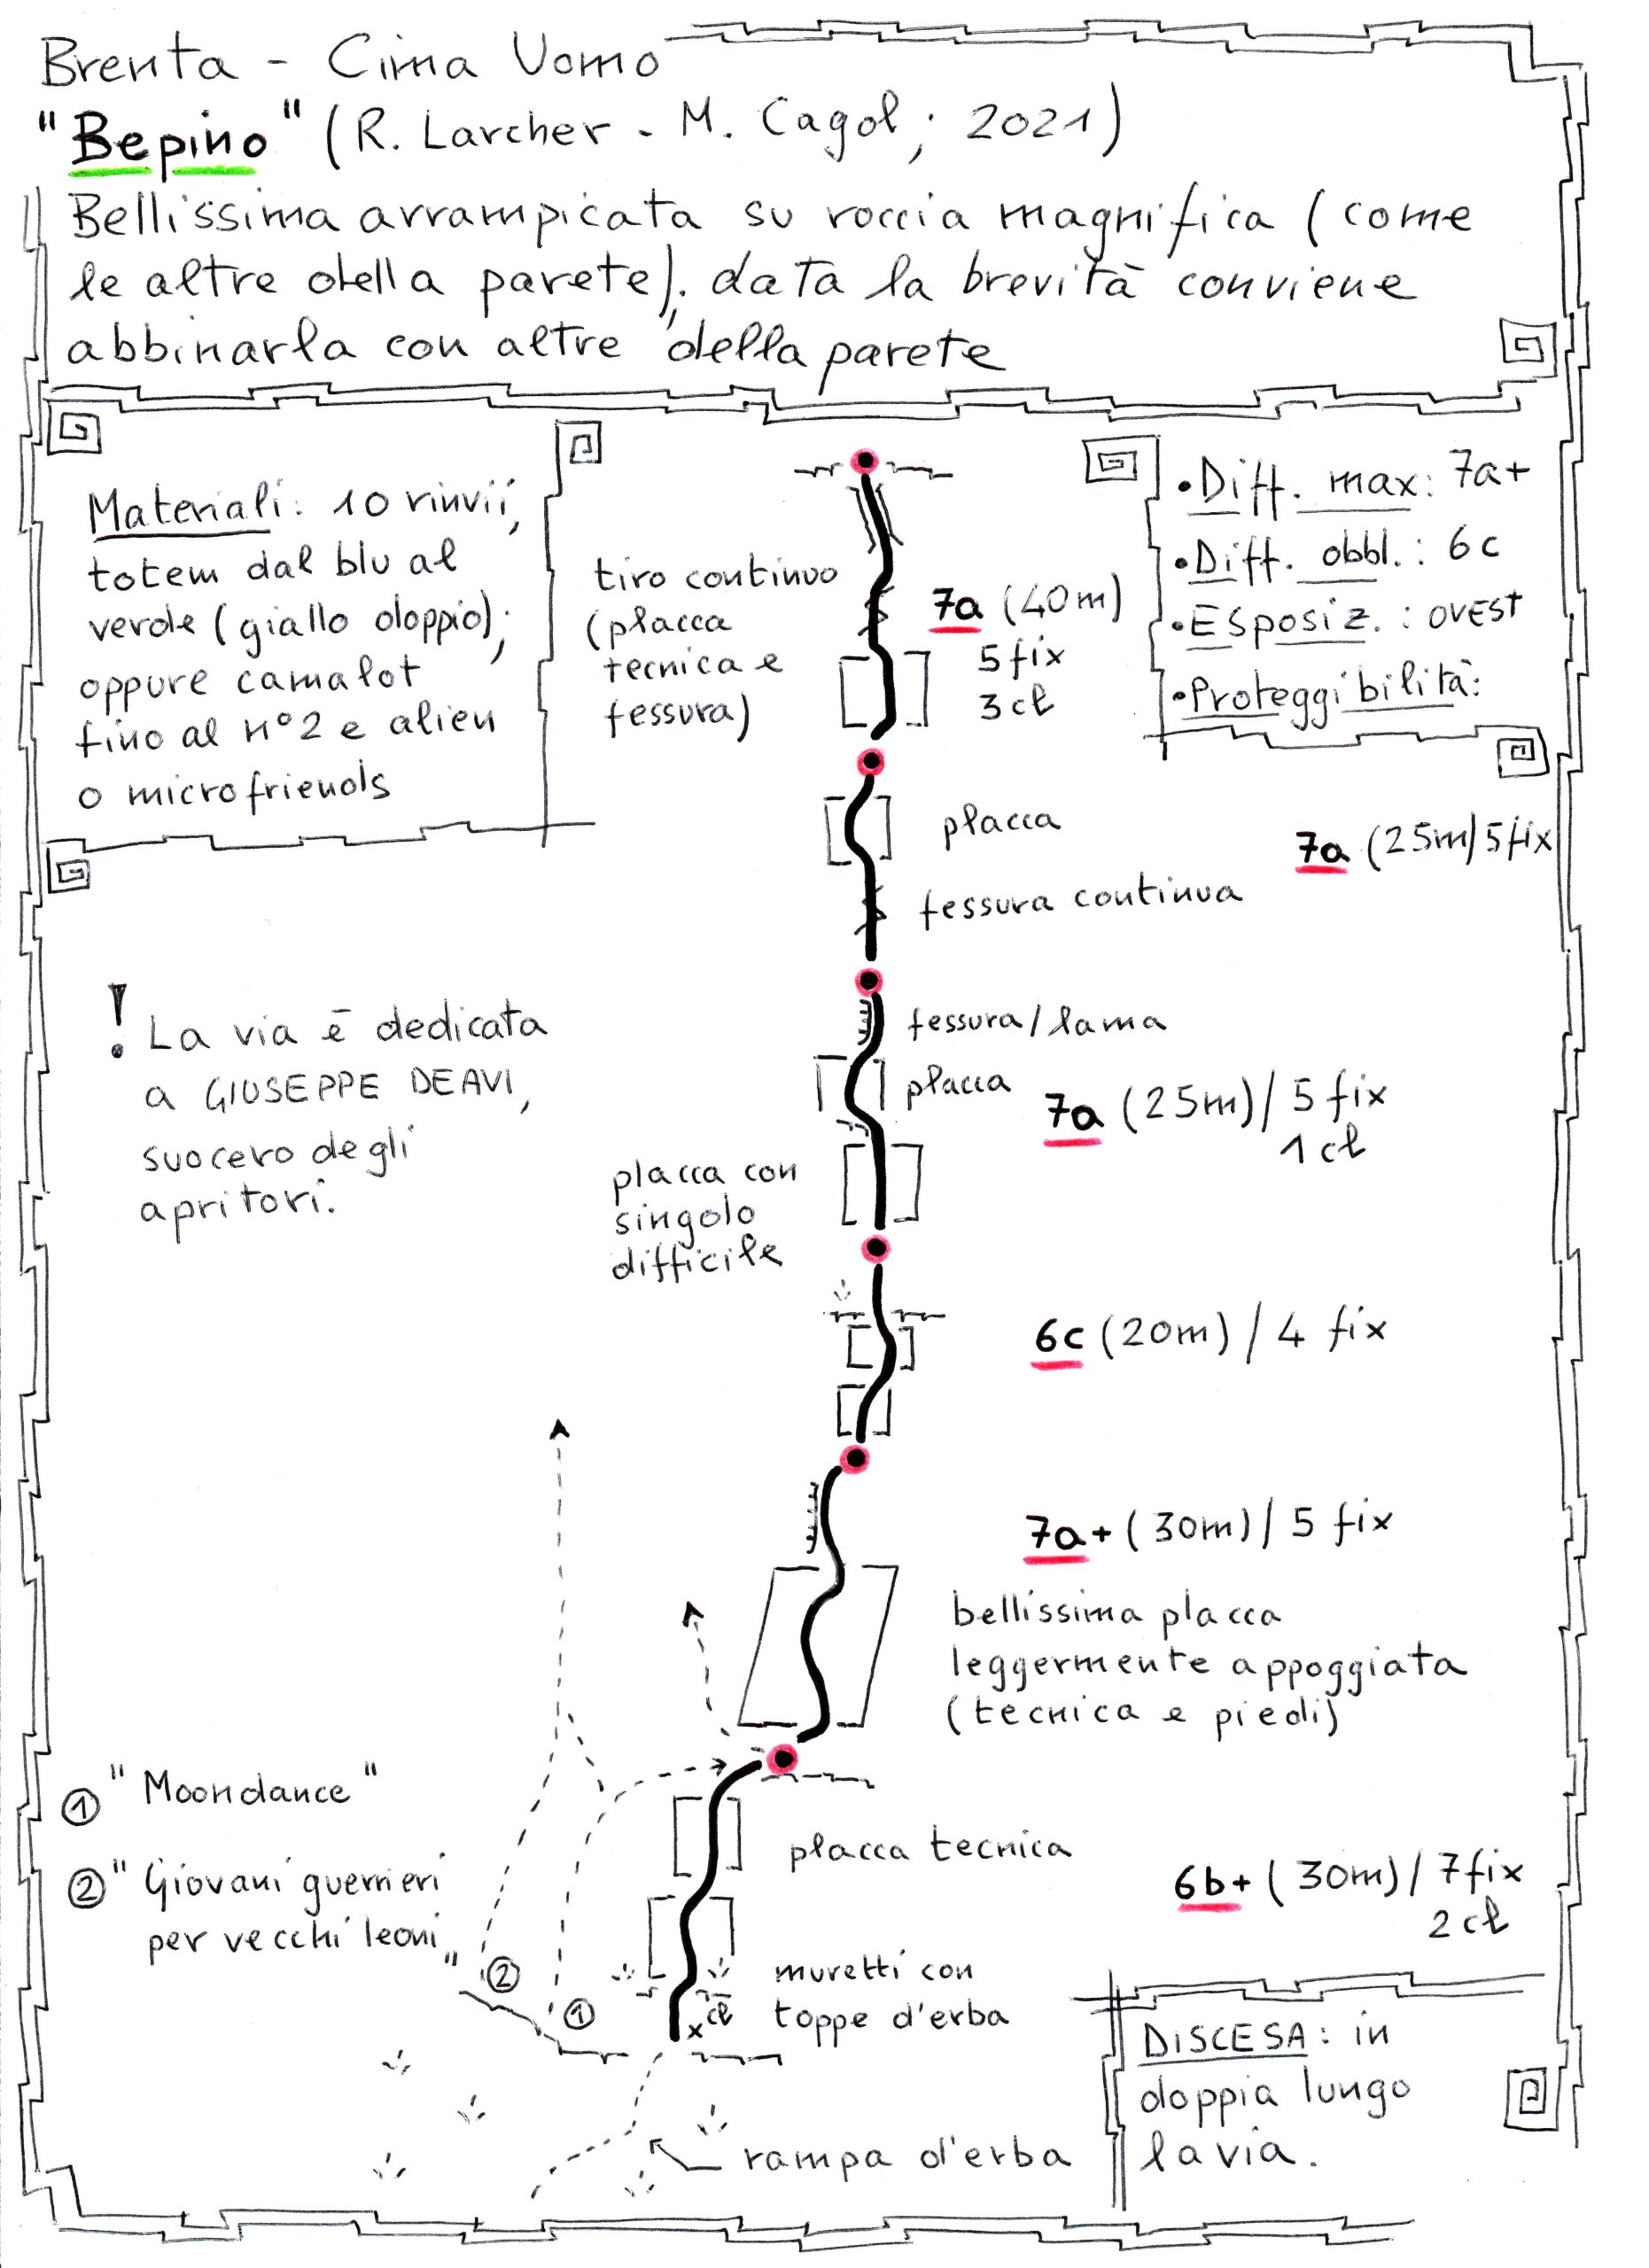 Brenta - Cima Uomo
"Bepino" (R. Larcher - M. Cagol; 2021)
Bellissima arrampicata su roccia magnifica (come
le altre della parete); data la brevità conviene
abbinarla con altre della parete
Materiali: 10 rinvii,
totem dal blu al
verde (giallo doppio);
oppure camalot
fino al n°2 e alien
o microfriends
tiro continuo
(placca
tecnica e
fessura)
7a (40m)
5 fix
3 cl
• Diff. max: 7a+
• Diff. obbl.: 6c
• Esposiz.: ovest
• Proteggibilità:
placca
7a (25m/5 fix
fessura continua
! La via è dedicata
a GIUSEPPE DEAVI,
suocero degli
apritori.
fessura/lama
placca
7a (25m)/ 5 fix
1 cl
placca con
singolo
difficile
6c (20m) / 4 fix
7a+ (30m)/ 5 fix
bellissima placca
leggermente appoggiata
(tecnica e piedi)
① "Moondance"
② "Giovani guerrieri
per vecchi leoni"
placca tecnica
6b+ (30m)/ 7 fix
2 cl
②
①
x cl
muretti con
toppe d'erba
rampa d'erba
DISCESA: in
doppia lungo
la via.